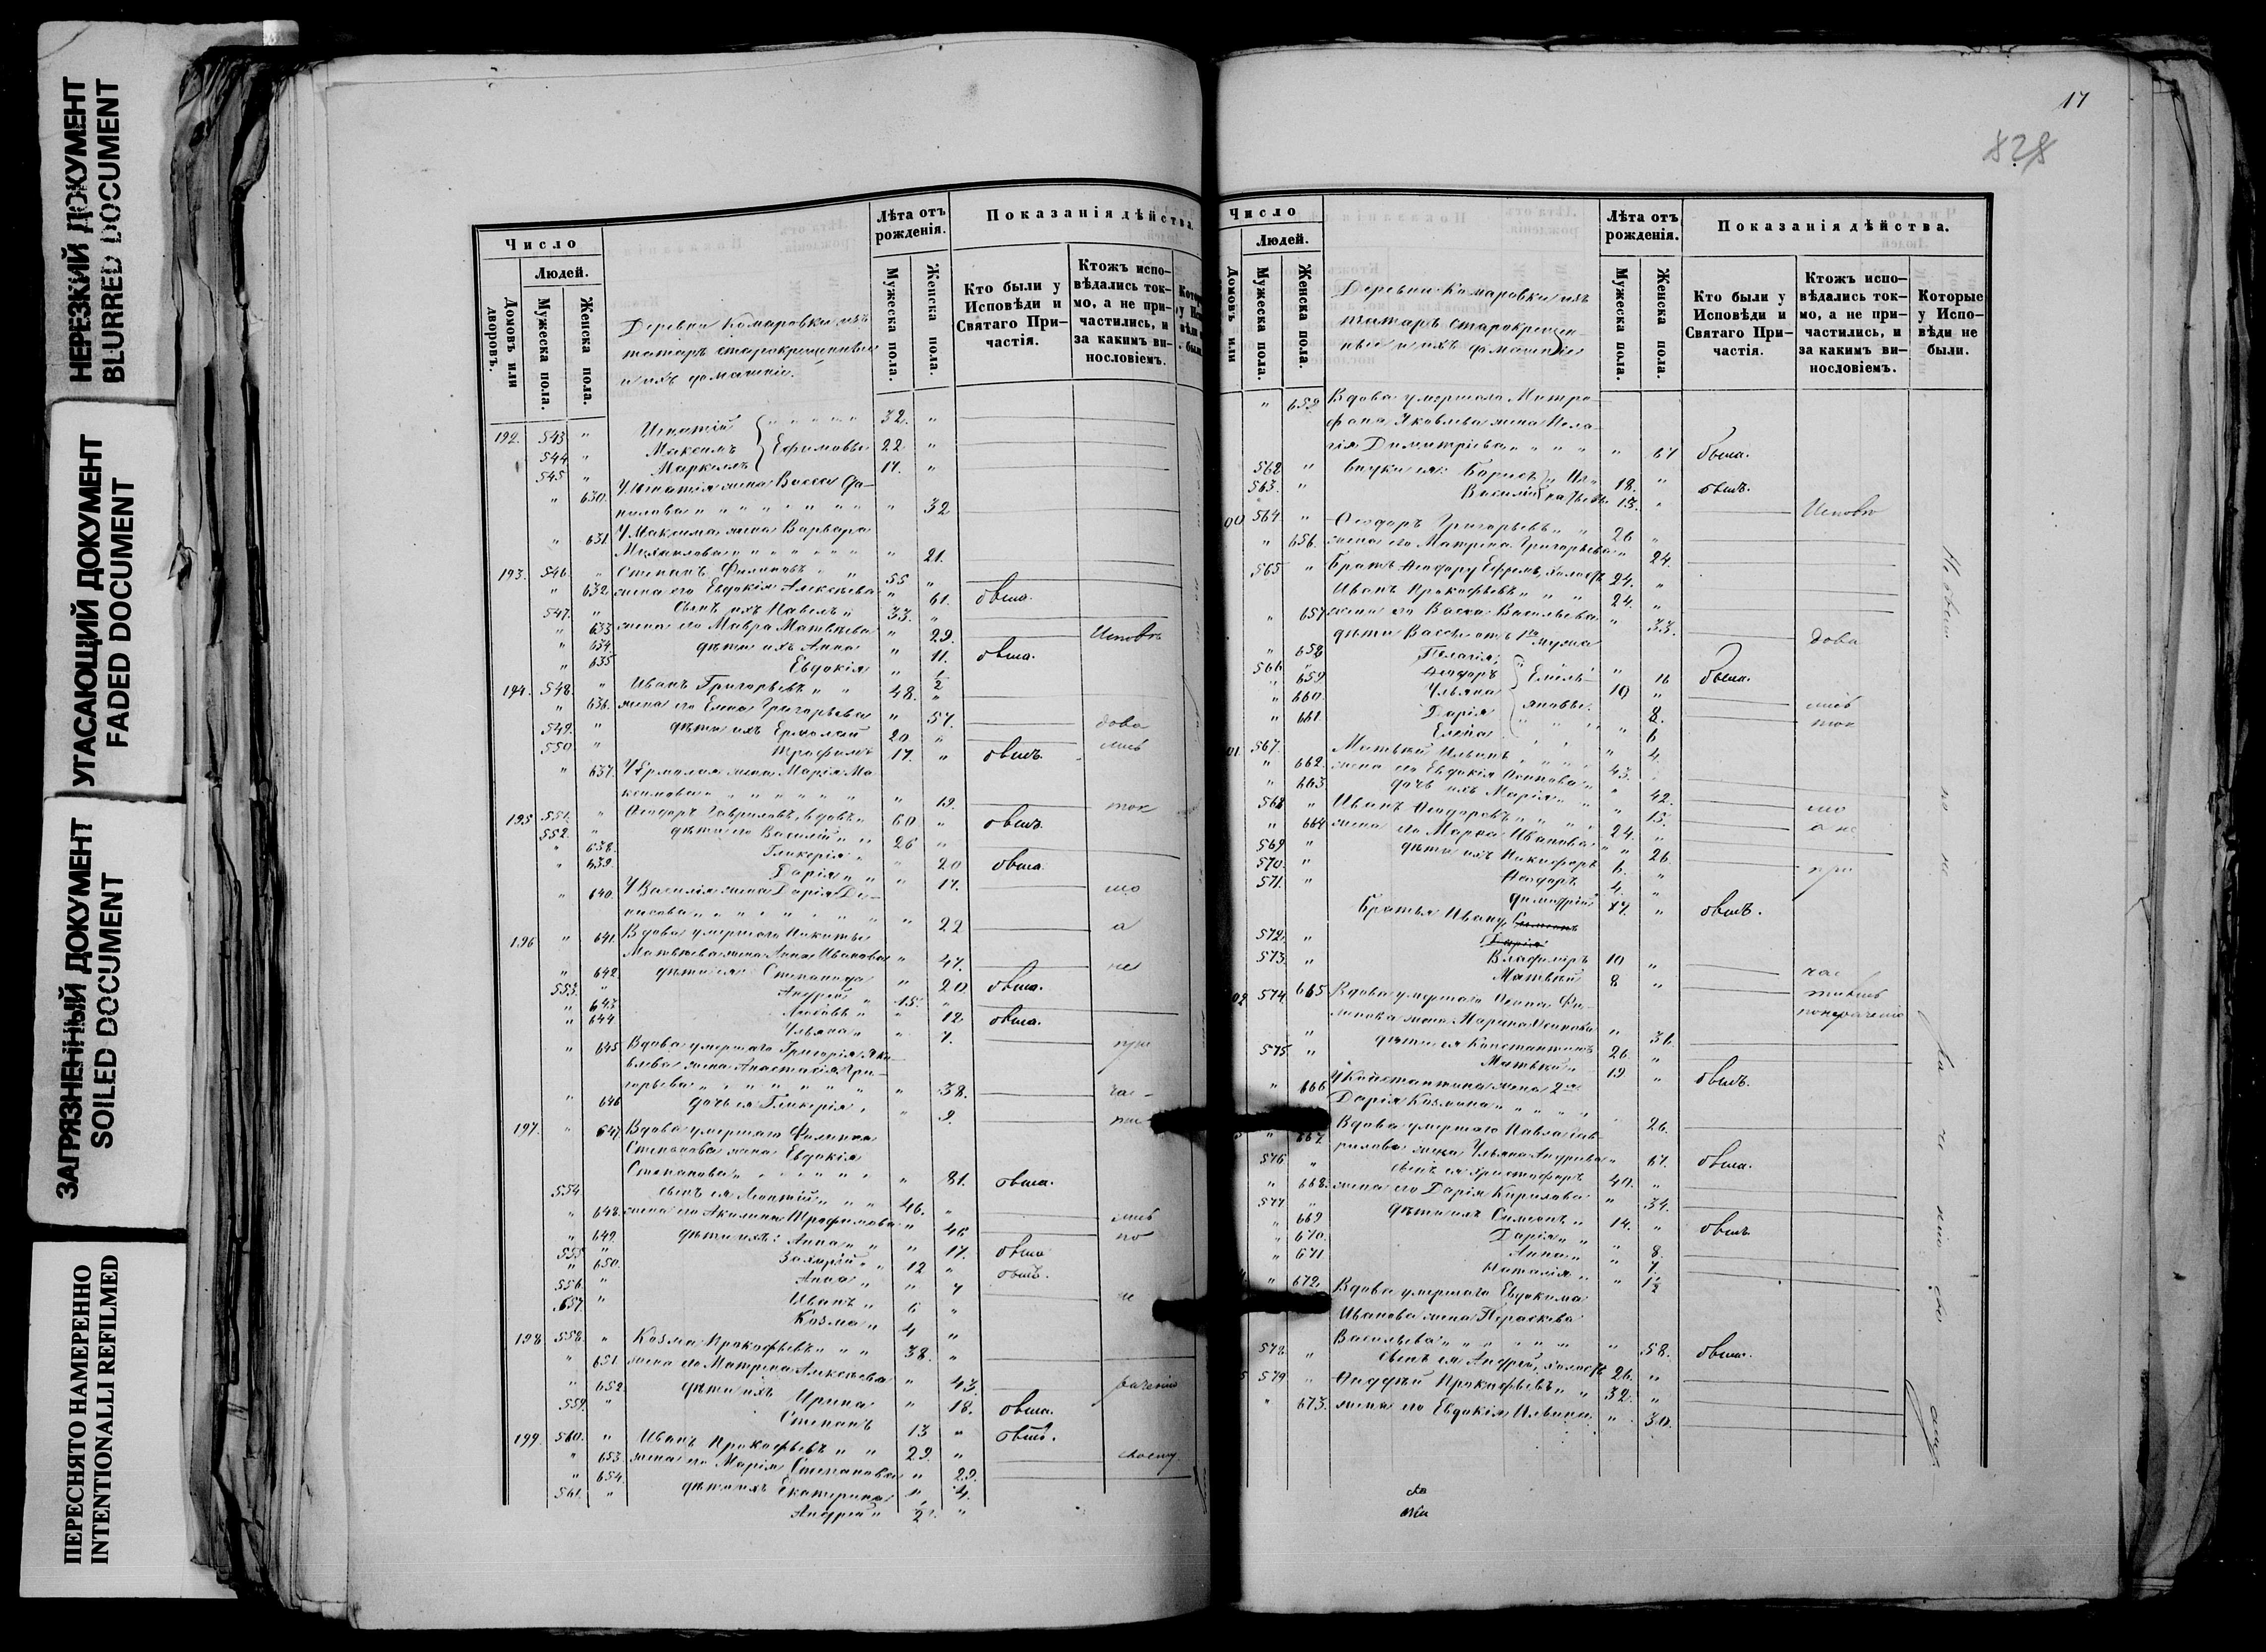 НЕРЕЗКИЙ ДОКУМЕНТ
BLURRED DOCUMENT
УГАСАЮЩИЙ ДОКУМЕНТ
FADED DOCUMENT
ЗАГРЯЗНЕННЫЙ ДОКУМЕНТ
SOILED DOCUMENT
ПЕРЕСНЯТО НАМЕРЕННО
INTENTIONALLI REFILMED
Число
Людей.
Домовъ или дворовъ.
Мужеска пола.
Женска пола.
Деревни Комаровки изъ
татаръ старокрещенные
и ихъ домашніе.
Лѣта отъ рожденія.
Мужеска пола.
Женска пола.
Показанія дѣйства.
Кто были у Исповѣди и Святаго При-частія.
Ктожъ испо-вѣдались ток-мо, а не при-частились, и за какимъ ви-нословіемъ.
192. 543 " Игнатій 32. "
544 " Максимъ } Ефимовы 22 "
545 " Маркеллъ 17. "
" 630. У Игнатія жена Васса Да-
ниловa " 32
" 631. У Максима жена Варвара
Михаилова " 21.
193. 546 " Степанъ Филиповъ 55 "
" 632. жена его Евдокія Алексѣева " 61. была.
547. " сынъ ихъ Павелъ 33. "
" 633 жена его Мавра Матвѣева " 29. Исповѣ
" 634. дѣти ихъ Анна " 11. была.
" 635 Евдокія " 1/2
194. 548. " Иванъ Григорьевъ 48. "
" 636. жена его Елена Григорьева " 57. дова
549. " дѣти ихъ Ермолай 20 " лись
550 " Трофимъ 17. " былъ
" 637. У Ермолая жена Марія Ма
ксимова " 19. ток
195 551. " Ѳеодоръ Гавриловъ, вдовъ 60 " былъ
552. " дѣти его Василій 26 "
" 638. Гликерія " 20 была
" 639. Дарія " 17.
" 640. У Василія жена Дарія Де-
нисова " 22 а
196 " 641. Вдова умершаго Никиты
Матвѣева жена Анна Иванова " 47. не
" 642. дѣти ея Степанида " 20. была.
553. " Андрей 15. "
" 643 Любовь " 12 была.
" 644 Ульяна " 7.
" 645 Вдова умершаго Григорія Яко
влева жена Анастасія Гри-
горьева " 38. час-
" 646 дочь ея Гликерія " 9.
197. " 647 Вдова умершаго Филиппа
Степанова жена Евдокія
Степанова " 81. была.
554 сынъ ея Леонтій 46. "
" 648. жена его Акилина Трофимова " 46 лись
" 649. дѣти ихъ: Анна " 17. была
555 " Захарій 12 " былъ.
" 650. Анна " 7
556. " Иванъ 6 "
557. " Козма 4 "
198 558. " Козма Прокофьевъ 38. "
" 651. жена его Матрена Алексѣева " 43.
" 652. дѣти ихъ Ирина " 18. была.
559. " Степанъ 13 " былъ.
199. 560. " Иванъ Прокофьевъ 29. "
" 653 жена его Марія Степанова " 29.
" 654. дѣти ихъ Екатерина " 4.
561. " Андрей 1/2 "
17
828
Число
Людей.
Домовъ или
Мужеска пола.
Женска пола.
Деревни Комаровки изъ
татаръ старокрещен-
ные и ихъ домашніе
Лѣта отъ рожденія.
Мужеска пола.
Женска пола.
Показанія дѣйства.
Кто были у Исповѣди и Святаго При-частія.
Ктожъ испо-вѣдались ток-мо, а не при-частились, и за какимъ ви-нословіемъ.
Которые у Испо-вѣди не были.
" 655 Вдова умершаго Митро
фана Яковлева жена Пела
гія Димитріева " 67 была.
562 " внуки ея: Борисъ 18. " былъ.
563. " Василій 13. "
564. " Ѳеодоръ Григорьевъ 26 "
" 656. жена его Матрена Григорьева " 24.
565 " Братъ Ѳеодору Ефремъ, холостъ 24. "
Иванъ Прокофьевъ 24. "
" 657 жена его Васса Васильева " 33. дова
дѣти Вассы отъ 1го мужа
" 658 Пелагія " 16 была.
566 " Ѳеодоръ } Емель- 10 " лись
" 659 Ульяна } яновы. " 8. ток
" 660. Дарія " 6
" 661. Елена " 4.
567. " Матвѣй Ильинъ 43. "
" 662. жена его Евдокія " 42.
" 663 дочь ихъ Марія " 15.
568 " Иванъ Ѳеодоровъ 24. "
" 664 жена его Марѳа Иванова " 26.
569 " дѣти ихъ Никифоръ 6. "
570. " Ѳеодоръ 4. "
571. " Димитрій " былъ.
Братья Ивану
572. " Владиміръ 10 "
573. " Матвѣй 8 "
574. 665 Вдова умершаго
жена Марина " 36.
" дѣти ея Константинъ 26. "
575 " Матвѣй 19 " былъ.
" 666 У Константина жена 2я
Дарія Козмина " 26.
" 667. Вдова умершаго Павла Гав-
рилова жена Ульяна Андреева " 67. была.
576 " сынъ ея Христофоръ 40. "
" 668. жена его Дарія Кирилова " 34.
577 " дѣти ихъ Симеонъ 14. " былъ
" 669 Дарія " 8.
" 670. Анна " 7.
" 671 Наталія " 1/2
" 672. Вдова умершаго Евдокима
Иванова жена Параскева
Васильева " 58. была.
578. " сынъ ея Андрей, холостъ 26. "
579 " Прокофьевъ 32. "
" 673. жена его Евдокія Ильина " 30.